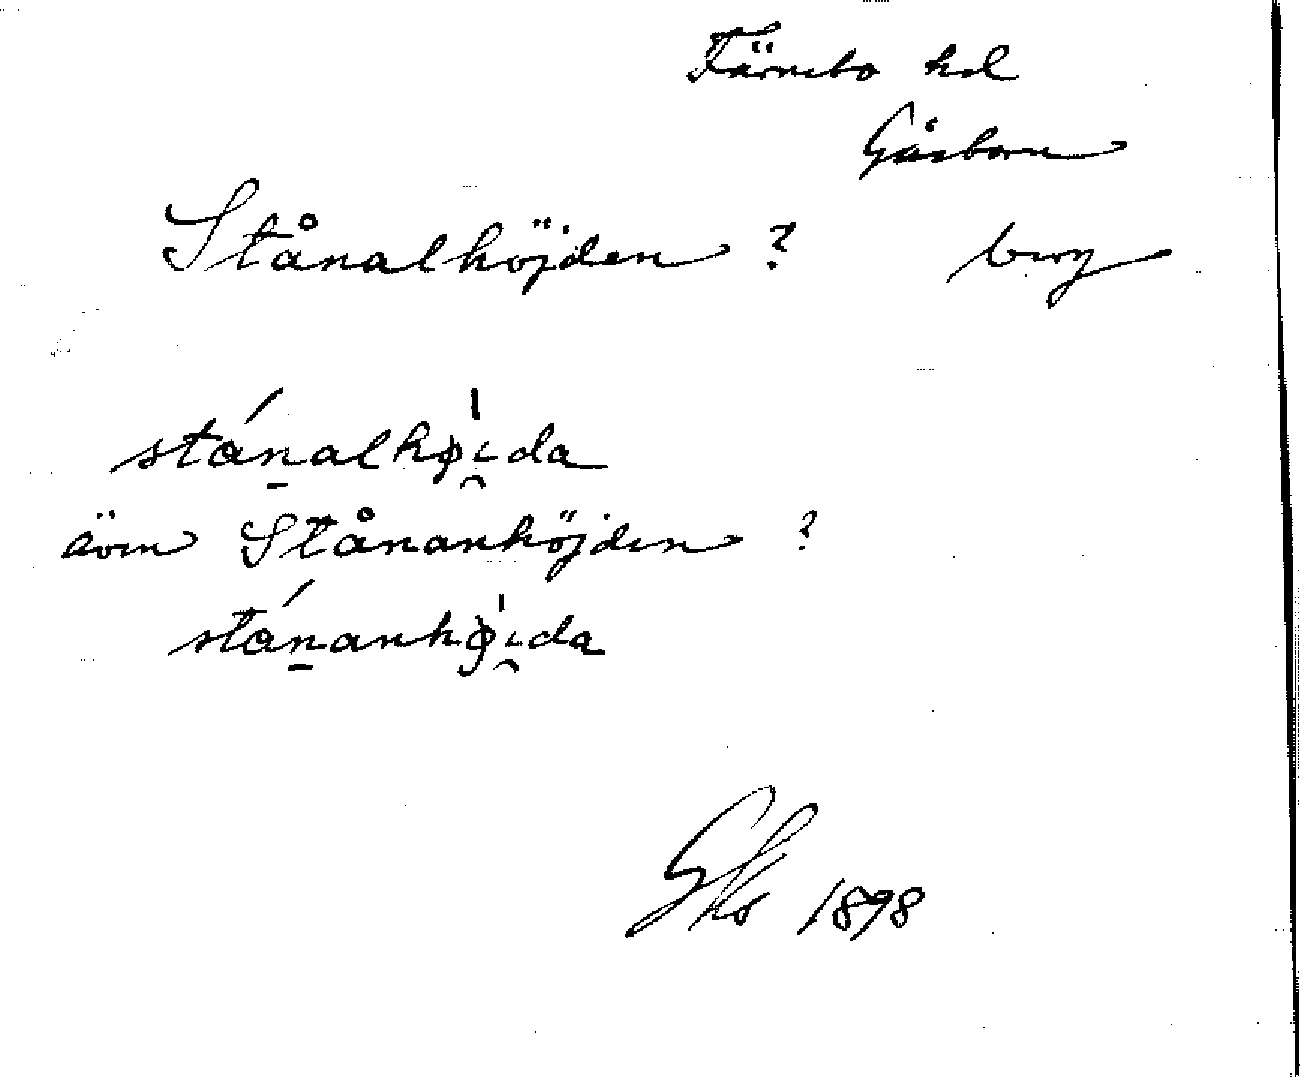 Färnebo hd
Gåsborn
Stånalhöjden ? berg
stánalhøi̯da
även Stånanhöjden ?
stánanhøi̯da
Gko 1898